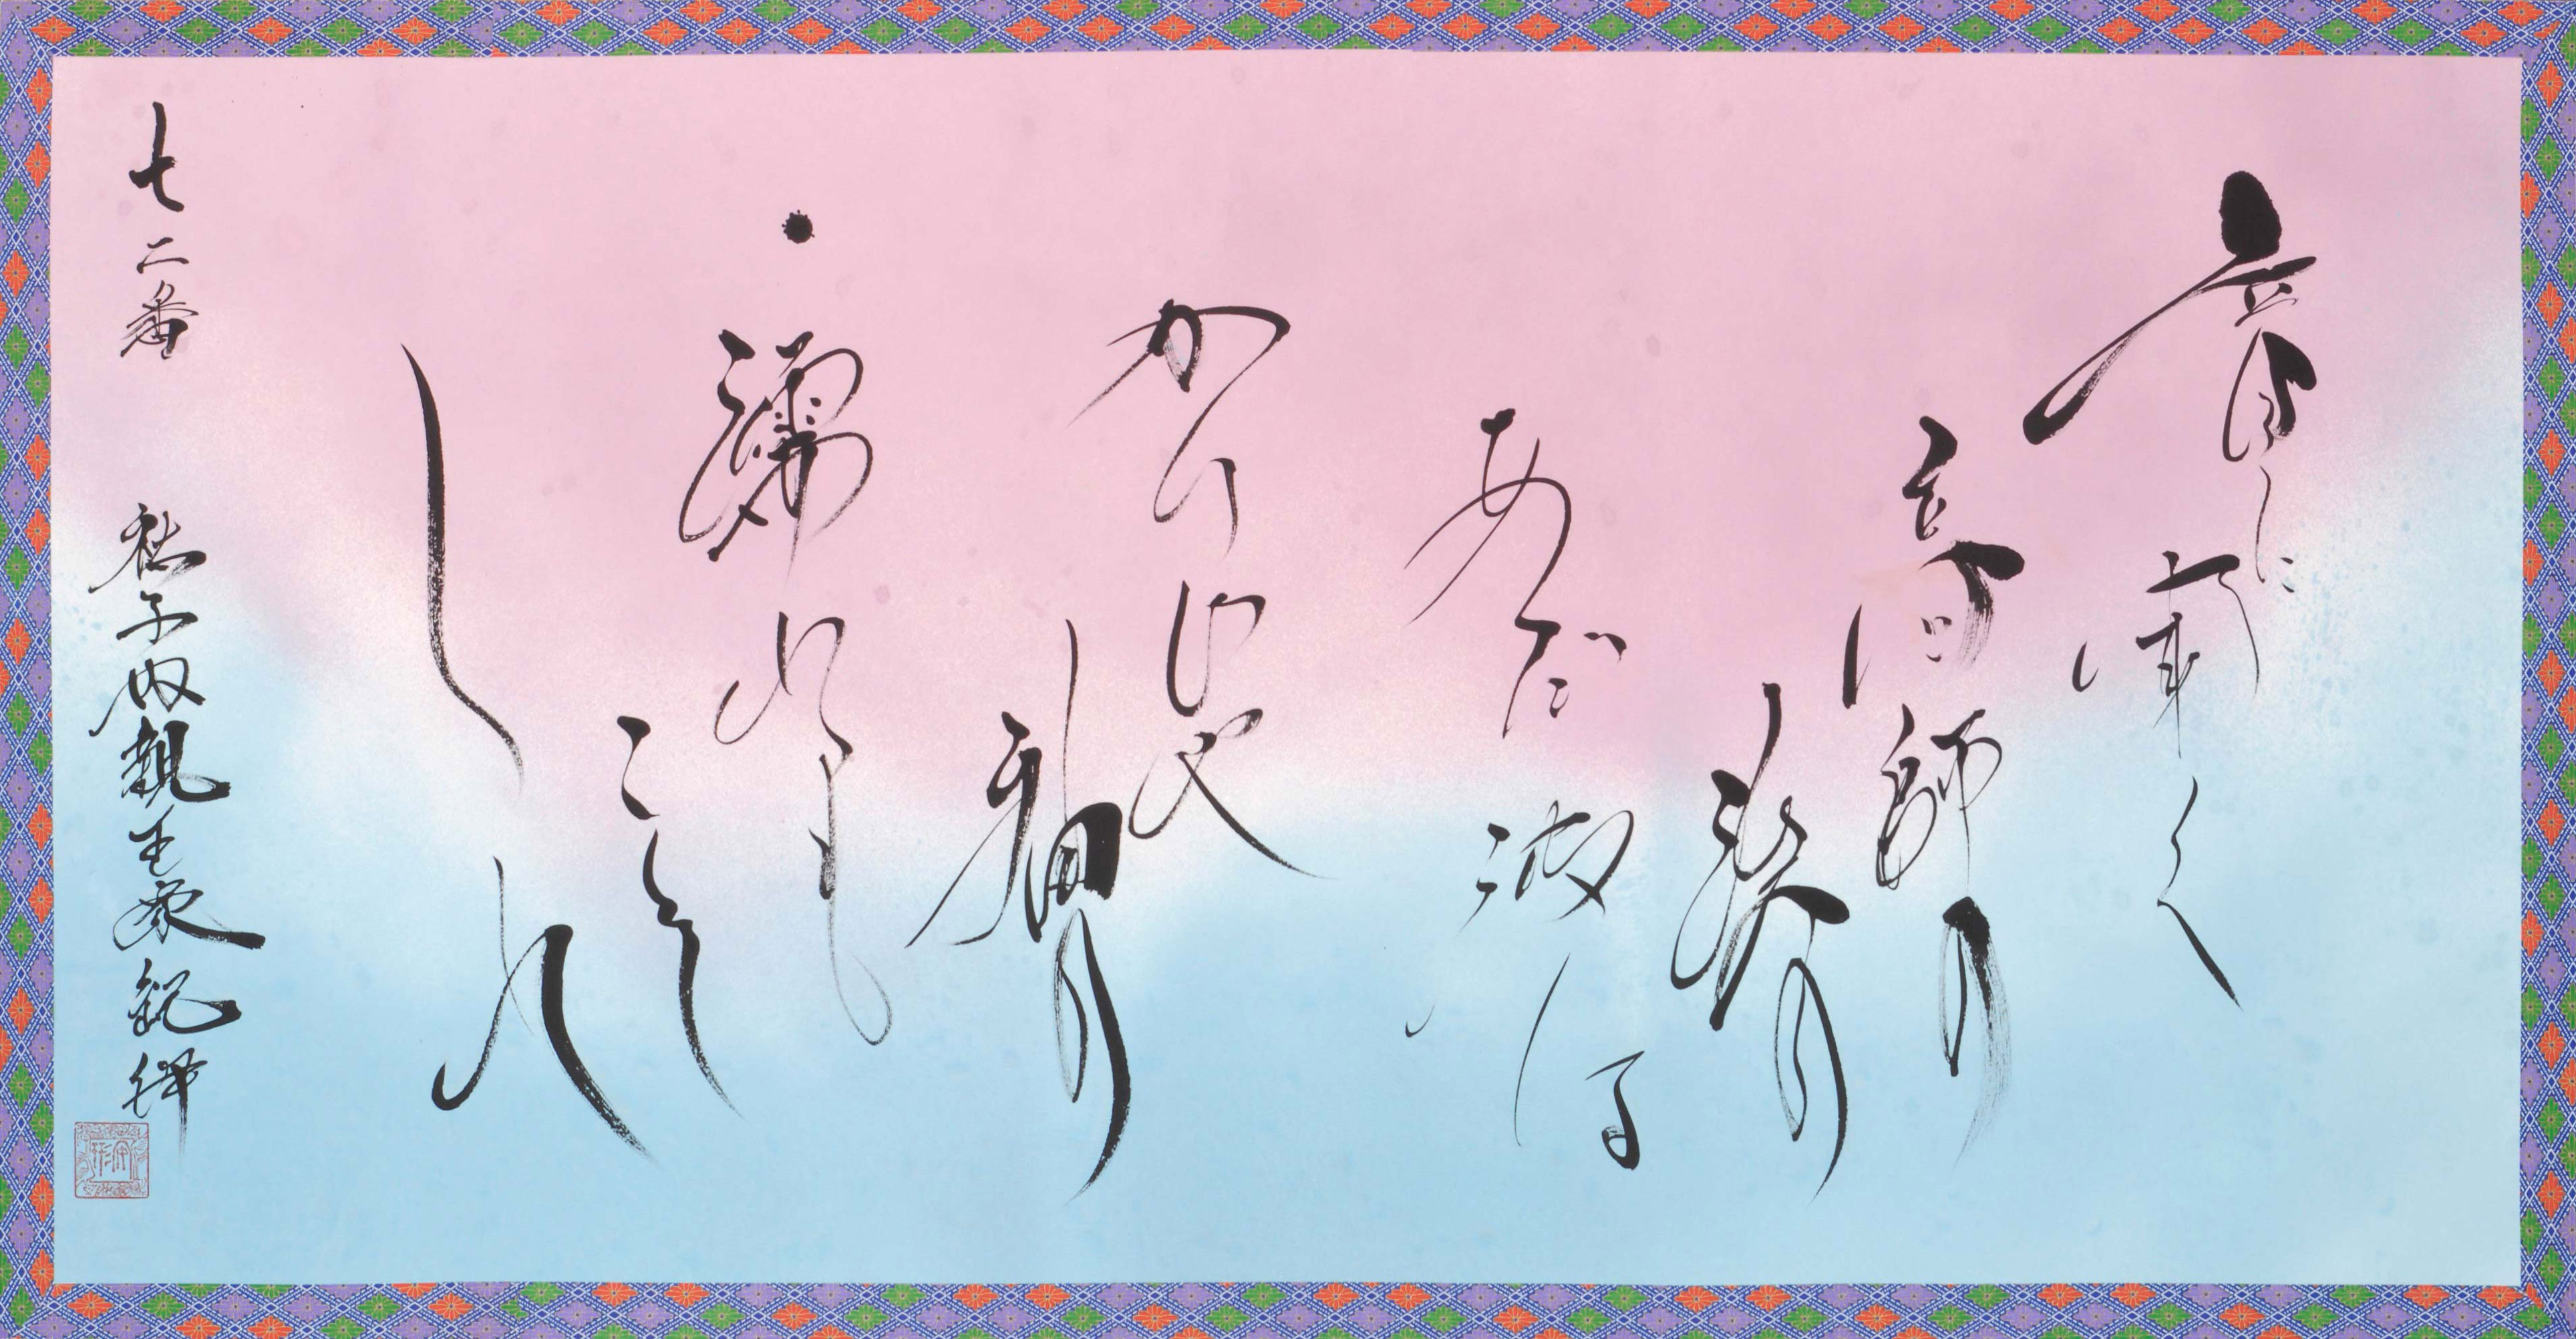 音に聞く
高師の
濱の
あだ波は
かけじや
袖の
濡れも
こそ
すれ
七二番 祐子内親王家紀伊